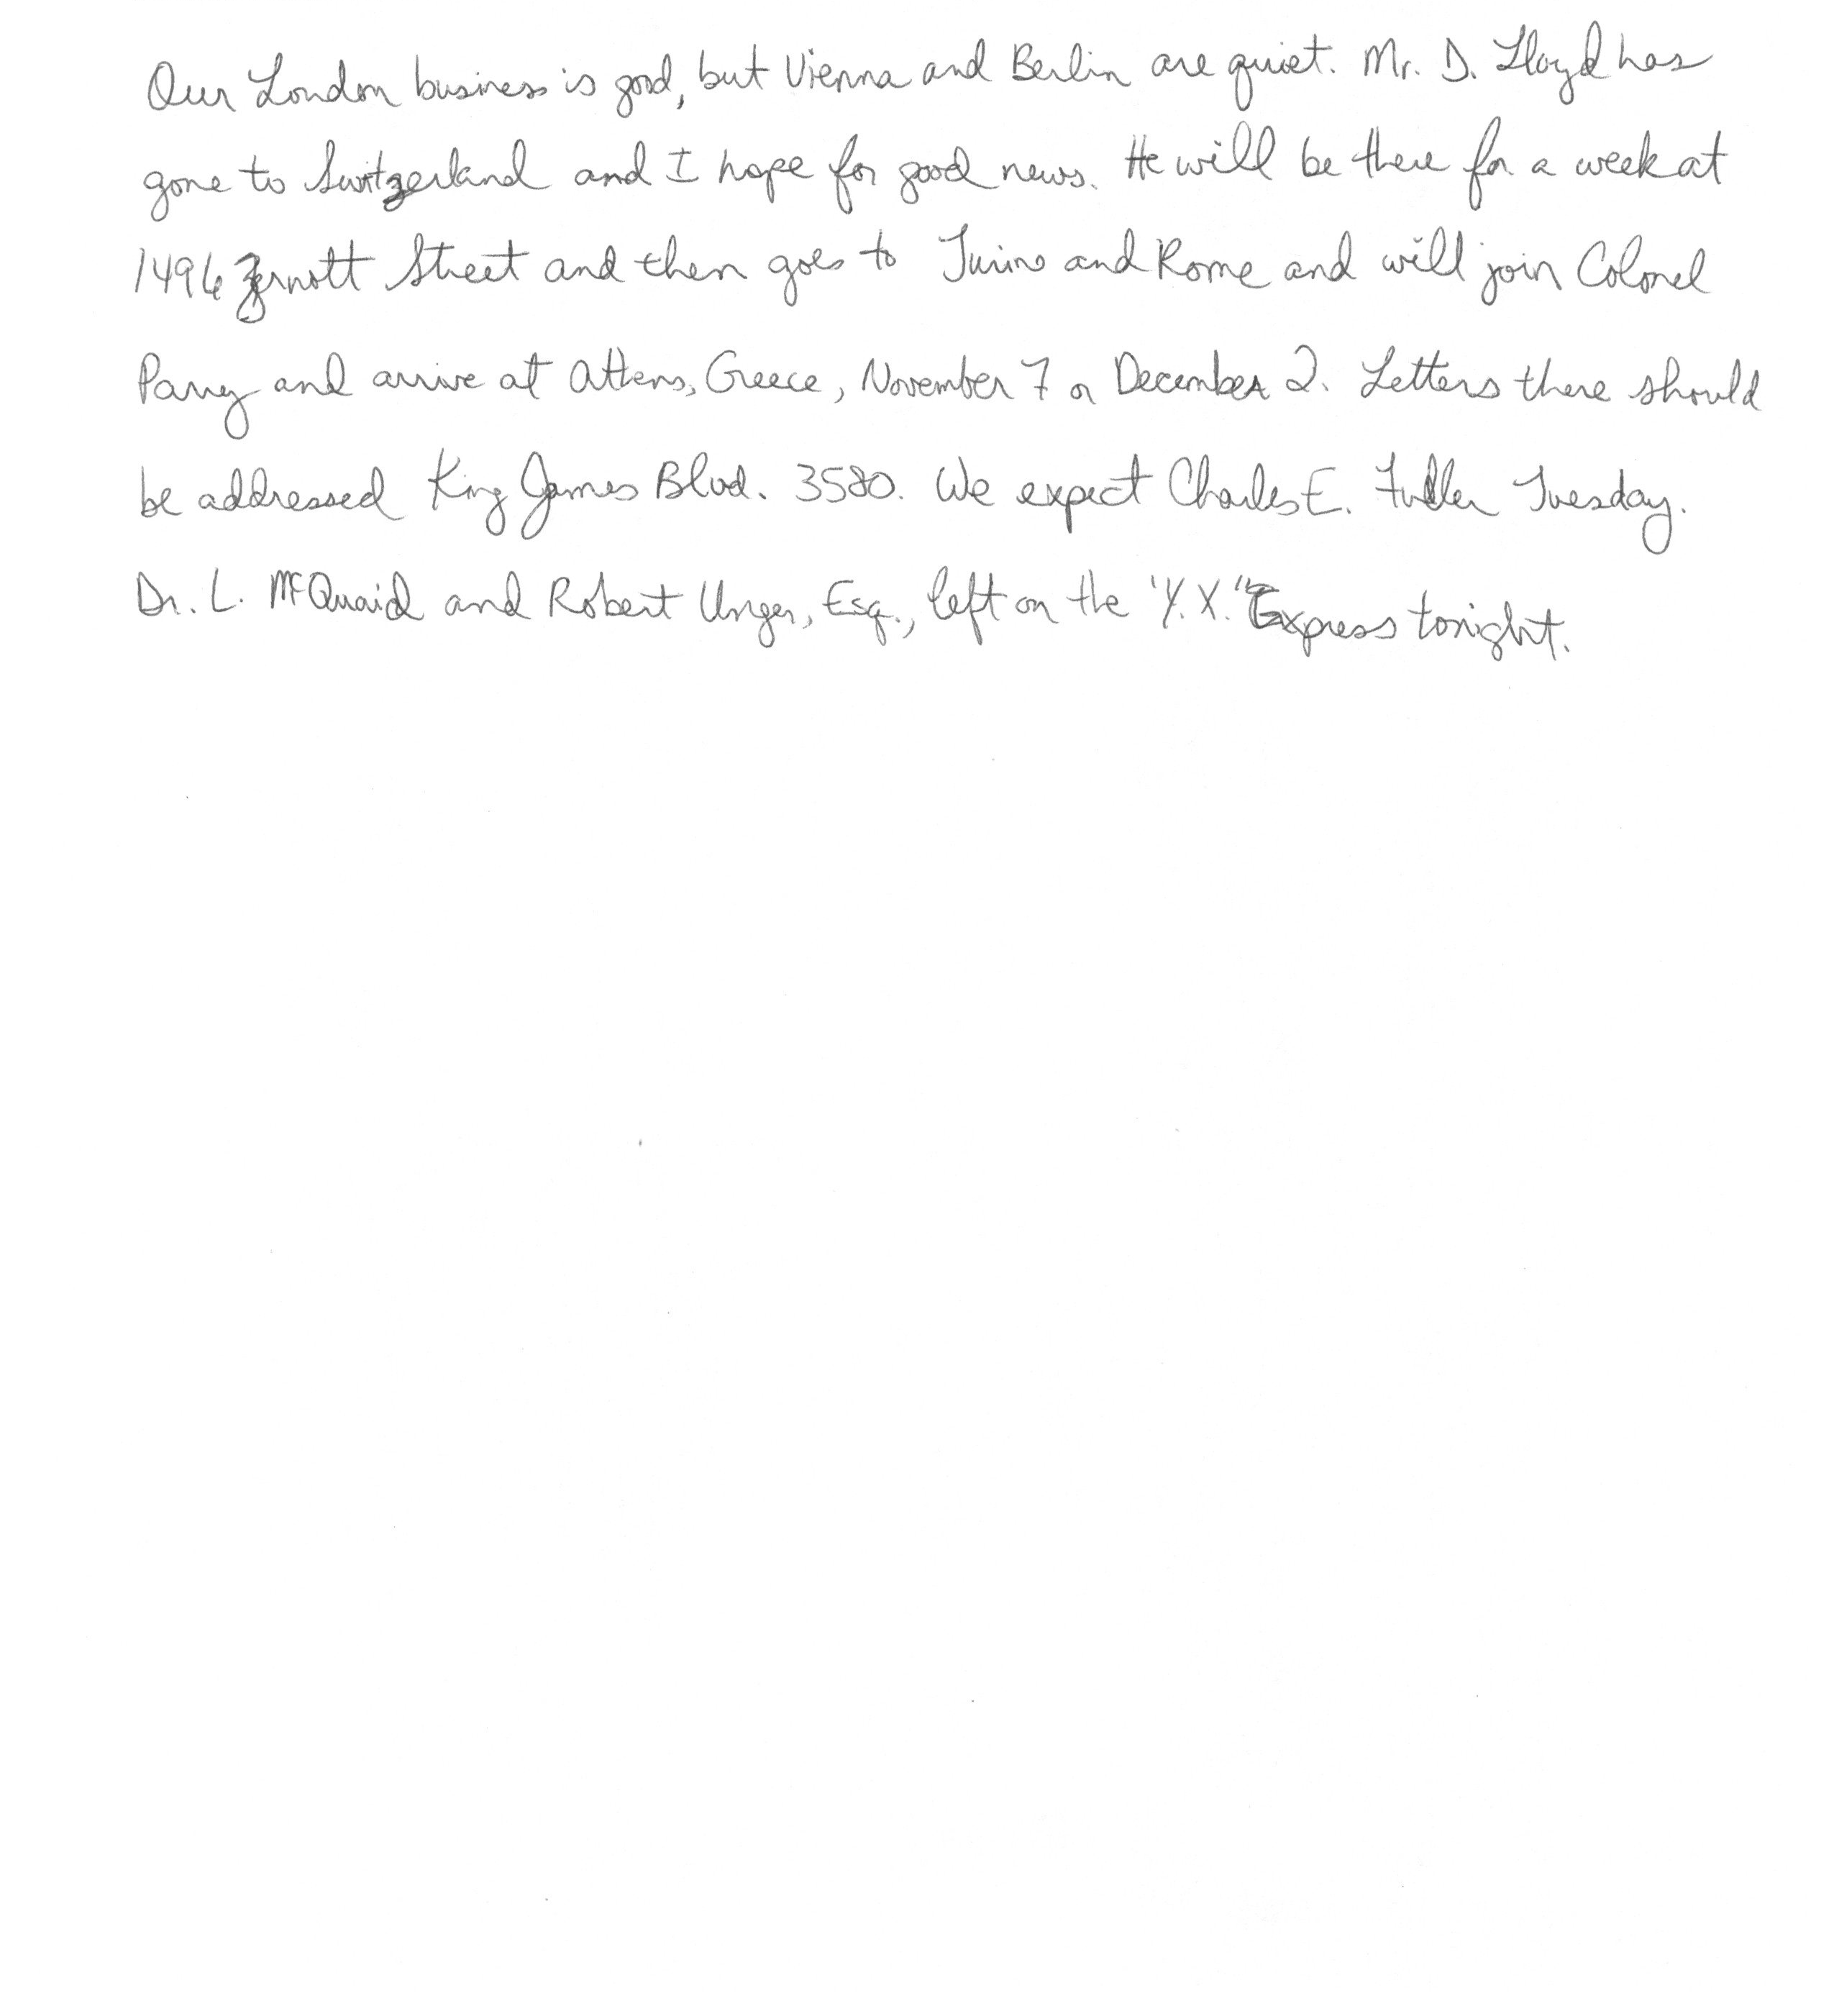 Our London business is good, but Vienna and Berlin are quiet. Mr. D. Lloyd has
gone to Switzerland and I hope for good news. He will be there for a week at
1496 Zermott Street and then goes to Turino and Rome and will join Colonel
Parry and arrive at Athens, Greece, November 7 or December 2. Letters there should
be addressed King James Blvd. 3580. We expect Charles E. Fuller Tuesday.
Dr. L. McQuaid and Robert Unger, Esq., left on the "Y.X." Express tonight.